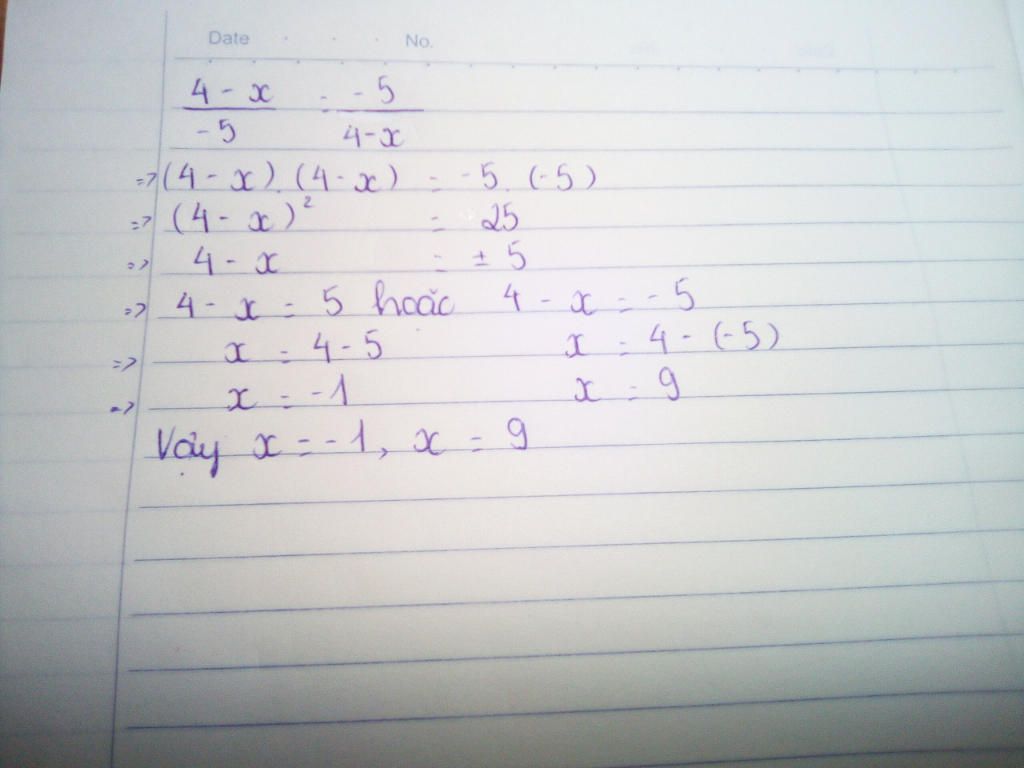 Date No.
4 - x = -5
-5 4-x
=> (4 - x).(4 - x) = -5.(-5)
=> (4 - x)² = 25
=> 4 - x = ± 5
=> 4 - x = 5 hoặc 4 - x = -5
=> x = 4 - 5 x = 4 - (-5)
=> x = -1 x = 9
Vậy x = -1, x = 9